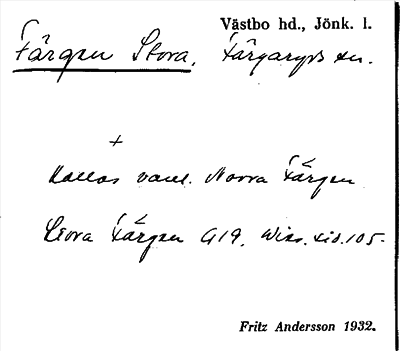 Västbo hd., Jönk. l.
Färgen Stora. Färgaryds sn.
+
Kallas vanl. Norra Färgen
Stora Färgen G19. Wies. sid. 105.
Fritz Andersson 1932.